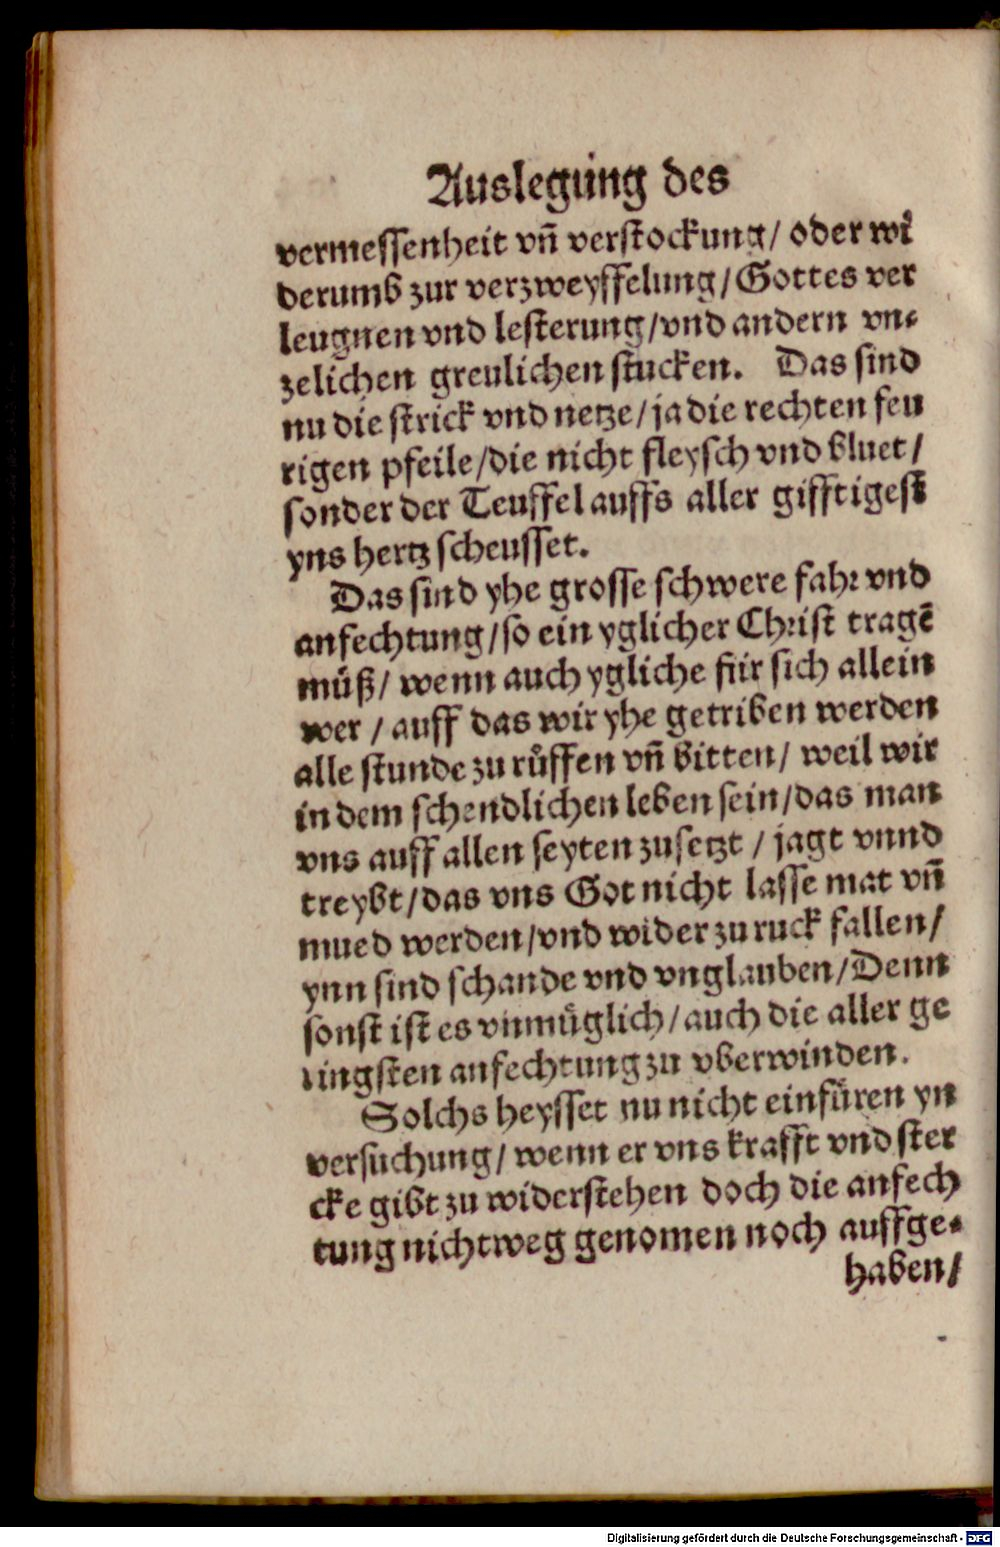 Auslegung des
vermessenheit vñ verstockung/ oder wi
derumb zur verzweyffelung/ Gottes ver
leugnen vnd lesterung/ vnd andern vn⸗
zelichen greulichen stucken. Das sind
nu die strick vnd netze/ ja die rechten feu
rigen pfeile/ die nicht fleysch vnd bluet/
sonder der Teuffel auffs aller gifftigest
yns hertz scheusset.
Das sind yhe grosse schwere fahr vnd
anfechtung/ so ein yglicher Christ tragē
muͤß/ wenn auch ygliche für sich allein
wer / auff das wir yhe getriben werden
alle stunde zu ruͤffen vñ bitten/ weil wir
in dem schendlichen leben sein/ das man
vns auff allen seyten zusetzt / jagt vnnd
treybt/ das vns Got nicht lasse mat vñ
mued werden/ vnd wider zu ruck fallen/
ynn sind schande vnd vnglauben/ Denn
sonst ist es vnmuͤglich/ auch die aller ge
ringsten anfechtung zu vberwinden.
Solchs heysset nu nicht einfuͤren yn
versuchung/ wenn er vns krafft vnd ster
cke gibt zu widerstehen doch die anfech
tung nicht weg genomen noch auffge⸗
haben/
Digitalisierung gefördert durch die Deutsche Forschungsgemeinschaft - DFG